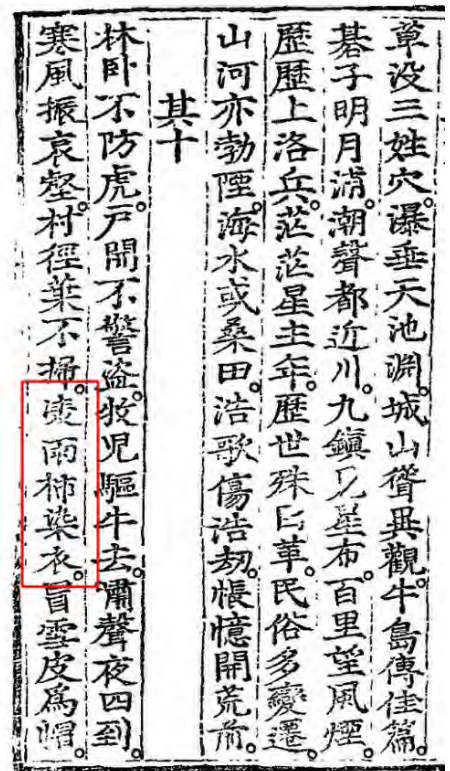 草没三姓穴。瀑垂天池淵。城山聳異觀。牛島傳佳篇。
碁子明月浦。潮聲都近川。九鎮見星布。百里望風煙。
歷歷上洛兵。茫茫星主年。歷世殊因革。民俗多變遷。
山河亦勃陧。海水或桑田。浩歌傷浩刼。悵憶開荒前。
其十
林卧不防虎。戶開不警盜。牧児驅牛去。嘯聲夜四到。
寒風振哀壑。村徑葉不掃。雨柿染衣。冒雪皮爲帽。